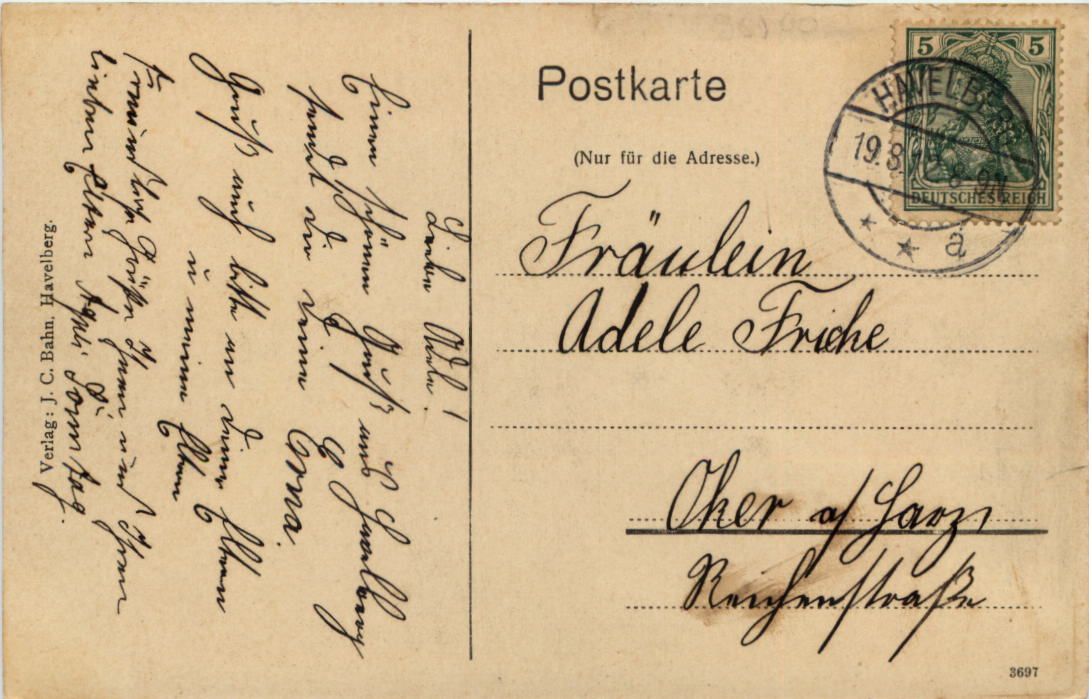 Postkarte
(Nur für die Adresse.)
5 5
DEUTSCHES REICH
HAVELBERG
19.8. 8-9N.
* * a
Fräulein
Adele Fricke
Oker a/Harz
Reichenstraße
3697
Liebe Adele!
Einen schönen Gruß aus Havelberg
sendet dir deine Erna.
Gruß auch bitte an deine Eltern
u meine Eltern
Freundliche Grüße Ihnen und Ihren
lieben Eltern Sonntag.
Verlag: J. C. Bahn, Havelberg.